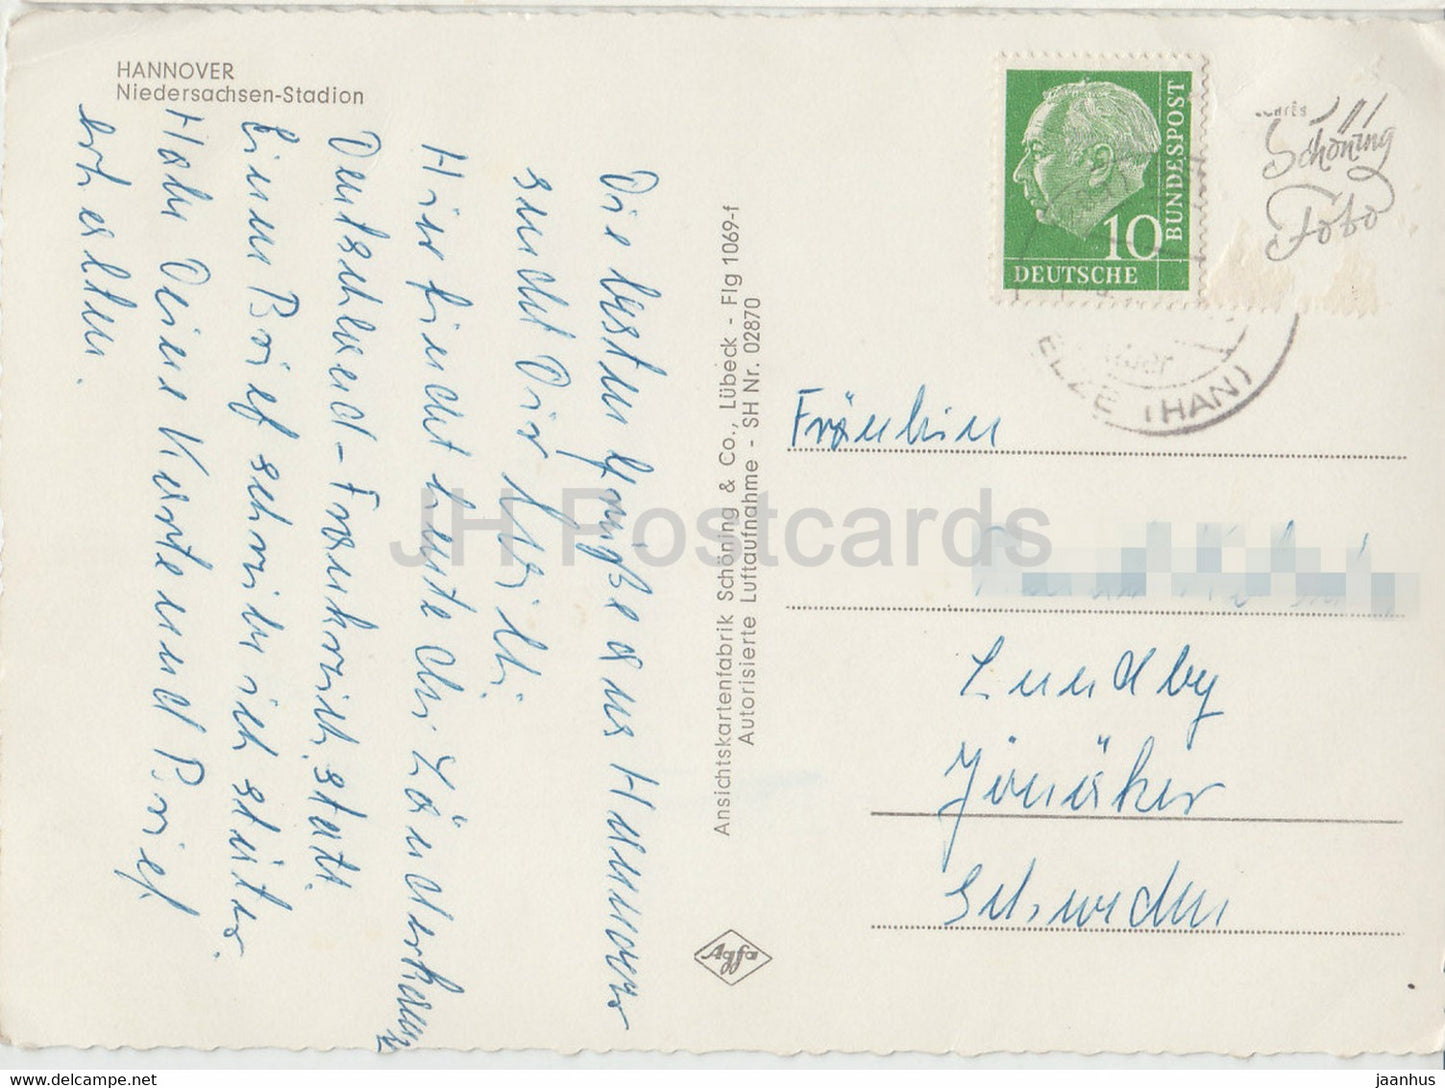 HANNOVER
Niedersachsen-Stadion
Die besten Grüße aus Hannover
sendet Dir Geridi.
Hier findet heute der Länderkampf
Deutschland-Frankreich statt.
Einen Brief schreibe ich später.
Habe Deine Karte und Brief
erhalten.
Ansichtskartenfabrik Schöning & Co., Lübeck - Flg 1069-f
Autorisierte Luftaufnahme - SH Nr. 02870
Agfa
DEUTSCHE
BUNDESPOST
10
Schöning
Foto
über
ELZE (HAN)
Fräulein
Lundby
Jönåker
Schweden
JH Postcards
https://www.hippostcard.com
jaanhus